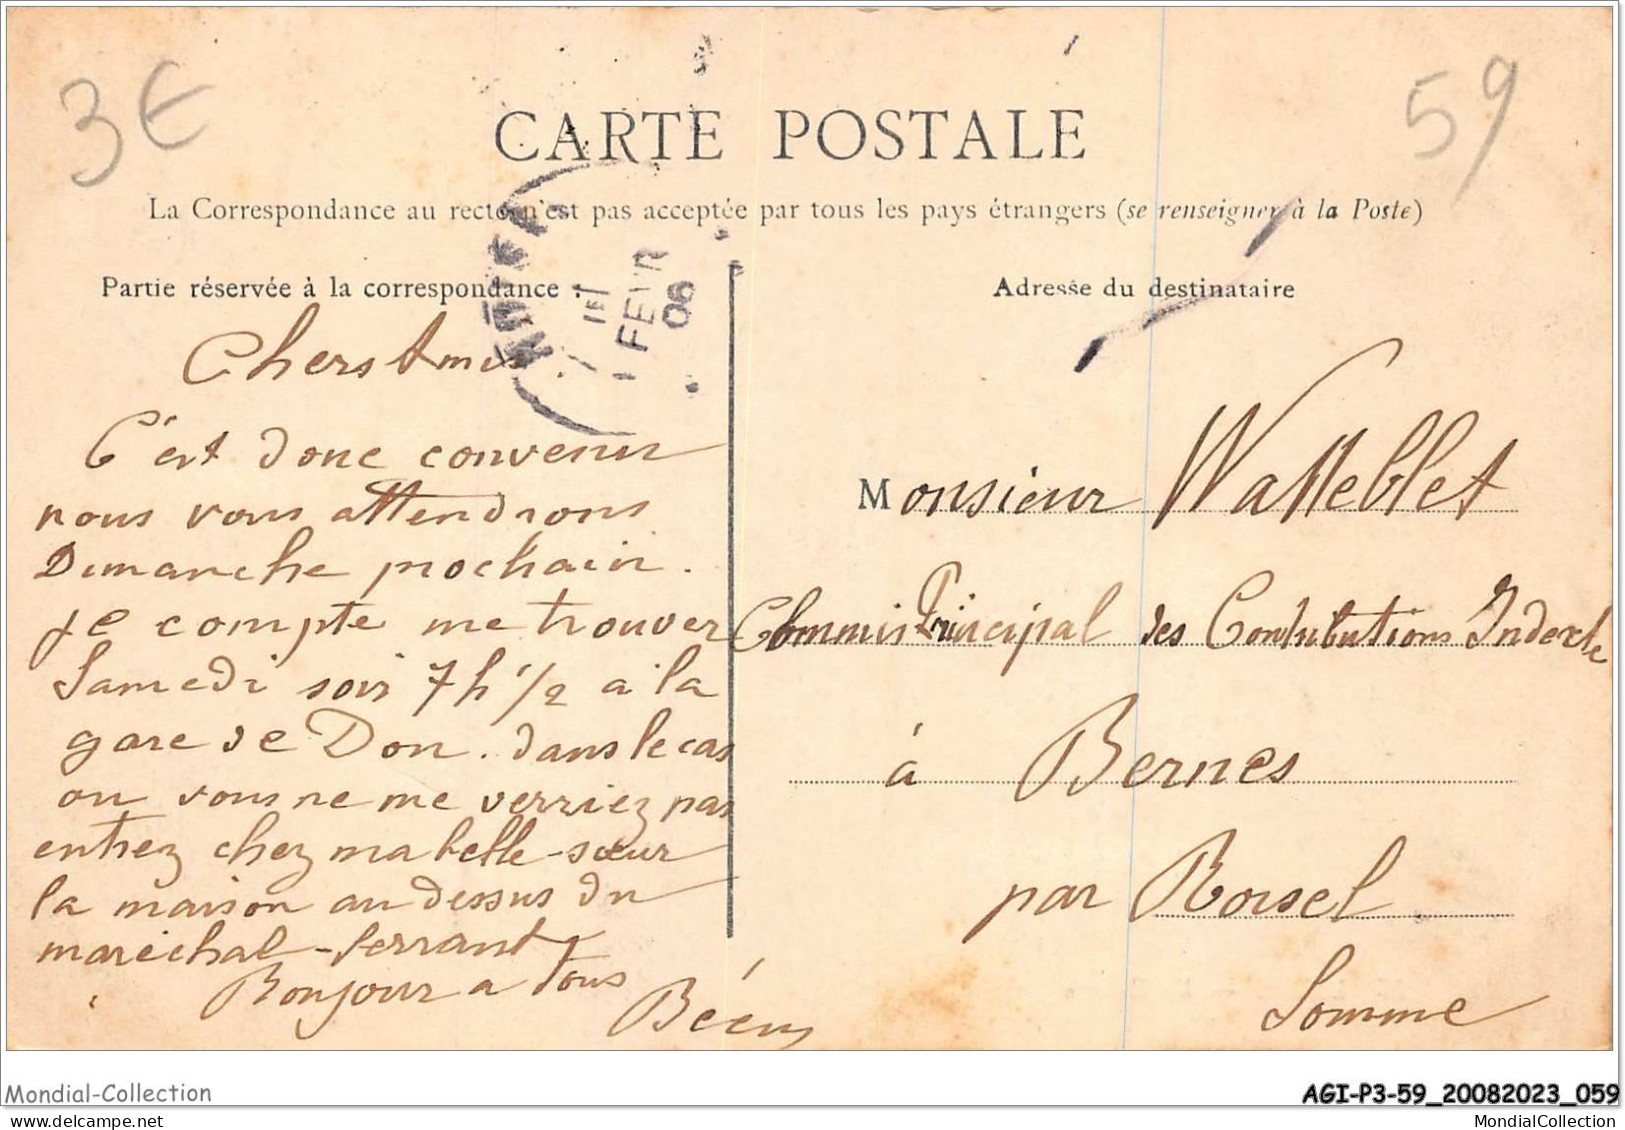 3€
59
CARTE POSTALE
La Correspondance au recto n'est pas acceptée par tous les pays étrangers (se renseigner à la Poste)
Partie réservée à la correspondance
Adresse du destinataire
FEVR
06
Chers Amis.
C'est donc convenu
nous vous attendrons
Dimanche prochain.
je compte me trouver
Samedi soir 7h 1/2 a la
gare de Don. dans le cas
ou vous ne me verriez pas
entrez chez ma belle-sœur
la maison au dessus du
maréchal-ferrant
Bonjour a tous
Monsieur Watteblet
Commis Principal des Contributions Indirectes
à Bernes
par Roisel
Somme
Mondial-Collection
AGI-P3-59_20082023_059
MondialCollection
MondialCollection